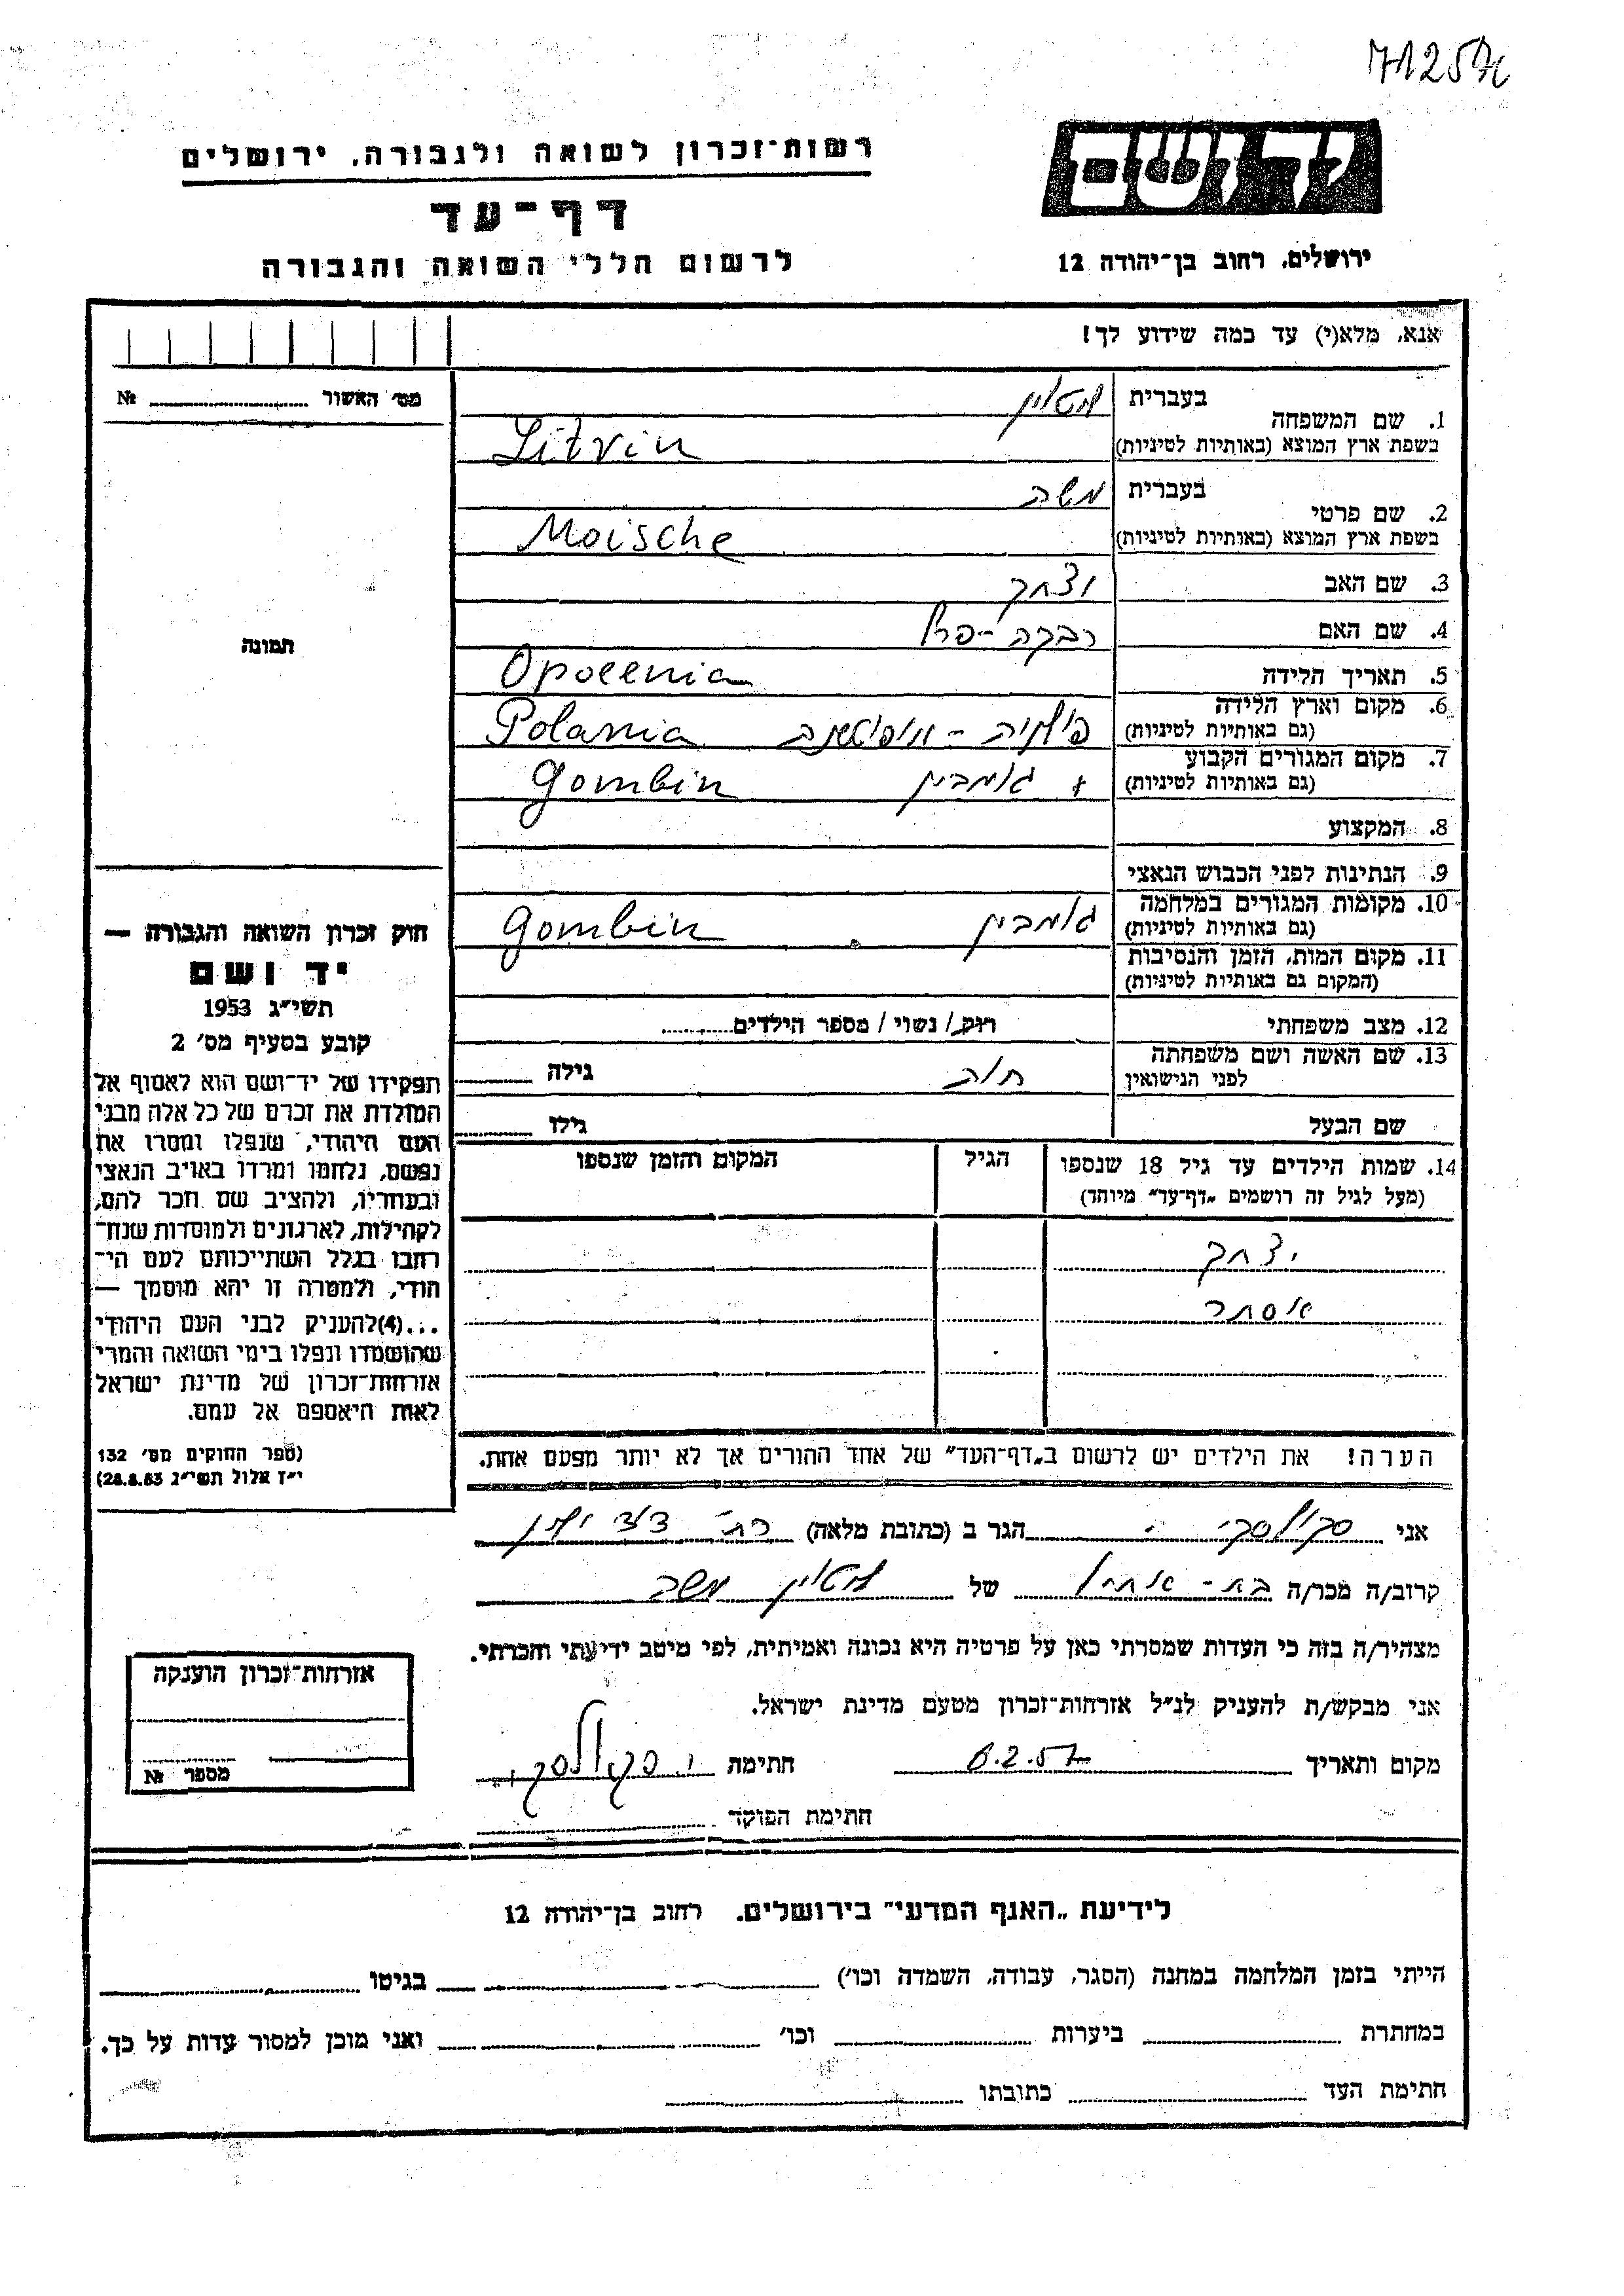 רשות־זכרון לשואה ולגבורה, ירושלים
דף־עד
לרשום חללי השואה והגבורה
יד ושם
ירושלים, רחוב בן־יהודה 12
אנא, מלא(י) עד כמה שידוע לך!
מס׳ האשור № 
תמונה
1. שם המשפחה בעברית ליטוין
בשפת ארץ המוצא (באותיות לטיניות) Litvin
2. שם פרטי בעברית משה
בשפת ארץ המוצא (באותיות לטיניות) Moische
3. שם האב יצחק
4. שם האם רבקה-פרל
5. תאריך הלידה
6. מקום וארץ הלידה
(גם באותיות לטיניות) Polania
7. מקום המגורים הקבוע
(גם באותיות לטיניות) גאמבין Gombin
8. המקצוע
9. הנתינות לפני הכבוש הנאצי
10. מקומות המגורים במלחמה
(גם באותיות לטיניות) גאמבין Gombin
11. מקום המות, הזמן והנסיבות
(המקום גם באותיות לטיניות)
12. מצב משפחתי רוק/ נשוי / מספר הילדים
13. שם האשה ושם משפחתה
לפני הנישואין חוה גילה
שם הבעל גילו
14. שמות הילדים עד גיל 18 שנספו הגיל המקום והזמן שנספו
(מעל לגיל זה רושמים „דף־עד״ מיוחד)
יצחק
אסתר
הערה! את הילדים יש לרשום ב„דף־העד״ של אחד ההורים אך לא יותר מפעם אחת.
חוק זכרון השואה והגבורה —
יד ושם
תשי״ג 1953
קובע בסעיף מס׳ 2
תפקידו של יד־ושם הוא לאסוף אל
המולדת את זכרם של כל אלה מבני
העם היהודי, שנפלו ומסרו את
נפשם, נלחמו ומרדו באויב הנאצי
ובעוזריו, ולהציב שם וזכר להם,
לקהילות, לארגונים ולמוסדות שנח־
רבו בגלל השתייכותם לעם הי־
הודי, ולמטרה זו יהא מוסמך —
...(4)להעניק לבני העם היהודי
שהושמדו ונפלו בימי השואה והמרי
אזרחות־זכרון של מדינת ישראל
לאות היאספם אל עמם.
(ספר החוקים מס׳ 132
י״ז אלול תשי״ג 28.8.53)
אני סקולסקי י. הגר ב (כתובת מלאה)
קרוב/ה מכר/ה של ליטוין משה
מצהיר/ה בזה כי העדות שמסרתי כאן על פרטיה היא נכונה ואמיתית, לפי מיטב ידיעתי והכרתי.
אני מבקש/ת להעניק לנ״ל אזרחות־זכרון מטעם מדינת ישראל.
מקום ותאריך 6.2.57 חתימה י. סקולסקי
חתימת הפוקד
אזרחות־זכרון הוענקה
מספר №
לידיעת „האגף המדעי״ בירושלים. רחוב בן־יהודה 12
הייתי בזמן המלחמה במחנה (הסגר, עבודה, השמדה וכו׳) בגיטו
במחתרת ביערות וכו׳ ואני מוכן למסור עדות על כך.
חתימת העד כתובתו